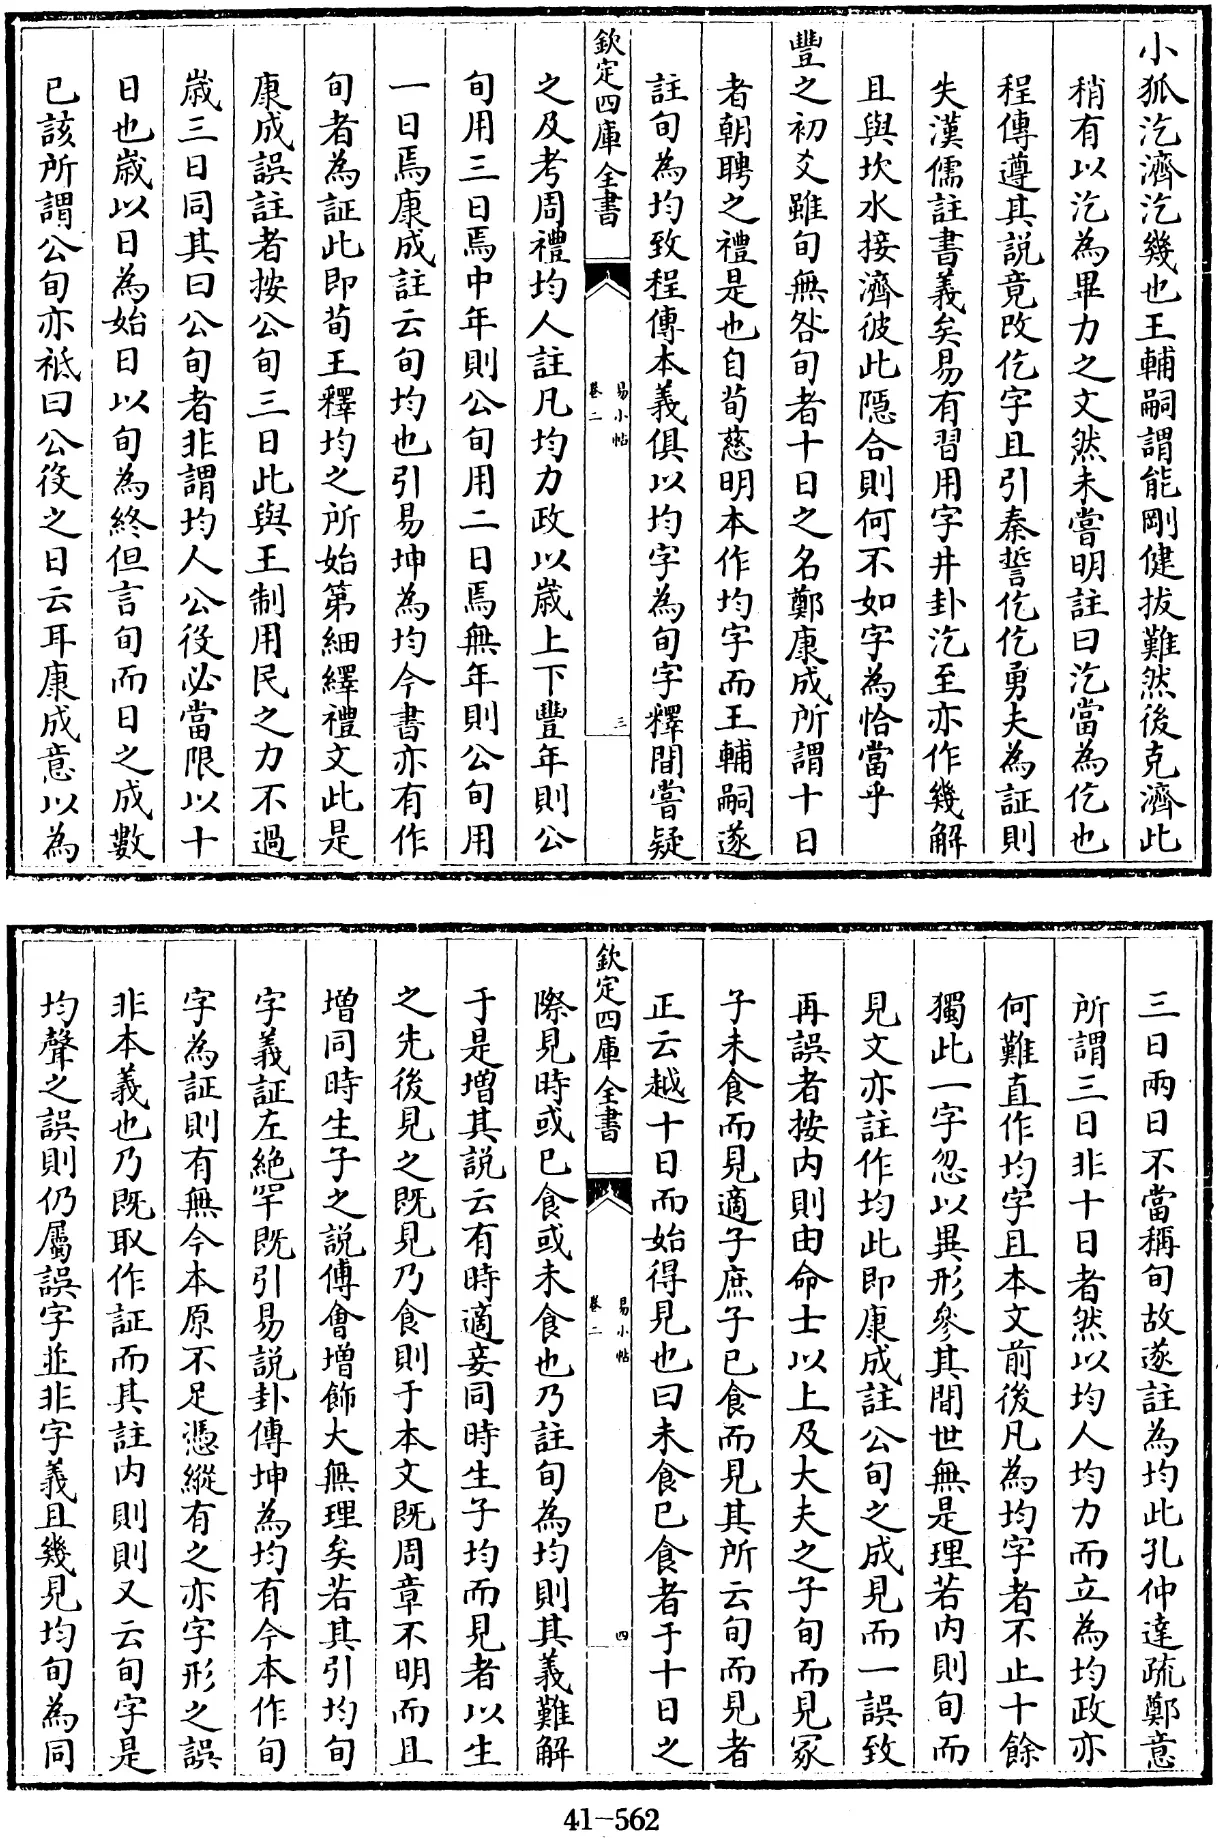 小狐汔濟汔幾也王輔嗣謂能剛健拔難然後克濟此
稍有以汔為畢力之文然未嘗明註曰汔當為仡也
程傳遵其説竟改仡字且引秦誓仡仡勇夫為証則
失漢儒註書義矣易有習用字井卦汔至亦作幾解
且與坎水接濟彼此隱合則何不如字為恰當乎
豐之初爻雖旬無咎旬者十日之名鄭康成所謂十日
者朝聘之禮是也自荀慈明本作均字而王輔嗣遂
註旬為均致程傳本義俱以均字為旬字釋間嘗疑
欽定四庫全書
易小帖
卷二
三
之及考周禮均人註凡均力政以歲上下豐年則公
旬用三日焉中年則公旬用二日焉無年則公旬用
一日焉康成註云旬均也引易坤為均今書亦有作
旬者為証此即荀王釋均之所始第細繹禮文此是
康成誤註者按公旬三日此與王制用民之力不過
歲三日同其曰公旬者非謂均人公役必當限以十
日也歲以日為始日以旬為終但言旬而日之成數
已該所謂公旬亦祗曰公役之日云耳康成意以為
三日兩日不當稱旬故遂註為均此孔仲達疏鄭意
所謂三日非十日者然以均人均力而立為均政亦
何難直作均字且本文前後凡為均字者不止十餘
獨此一字忽以異形參其間世無是理若内則旬而
見文亦註作均此即康成註公旬之成見而一誤致
再誤者按内則由命士以上及大夫之子旬而見冢
子未食而見適子庶子已食而見其所云旬而見者
正云越十日而始得見也曰未食已食者于十日之
欽定四庫全書
易小帖
卷二
四
際見時或已食或未食也乃註旬為均則其義難解
于是増其説云有時適妾同時生子均而見者以生
之先後見之既見乃食則于本文既周章不明而且
増同時生子之説傅會増飾大無理矣若其引均旬
字義証左絶罕既引易説卦傳坤為均有今本作旬
字為証則有無今本原不足憑縱有之亦字形之誤
非本義也乃既取作証而其註内則則又云旬字是
均聲之誤則仍屬誤字並非字義且幾見均旬為同
41-562